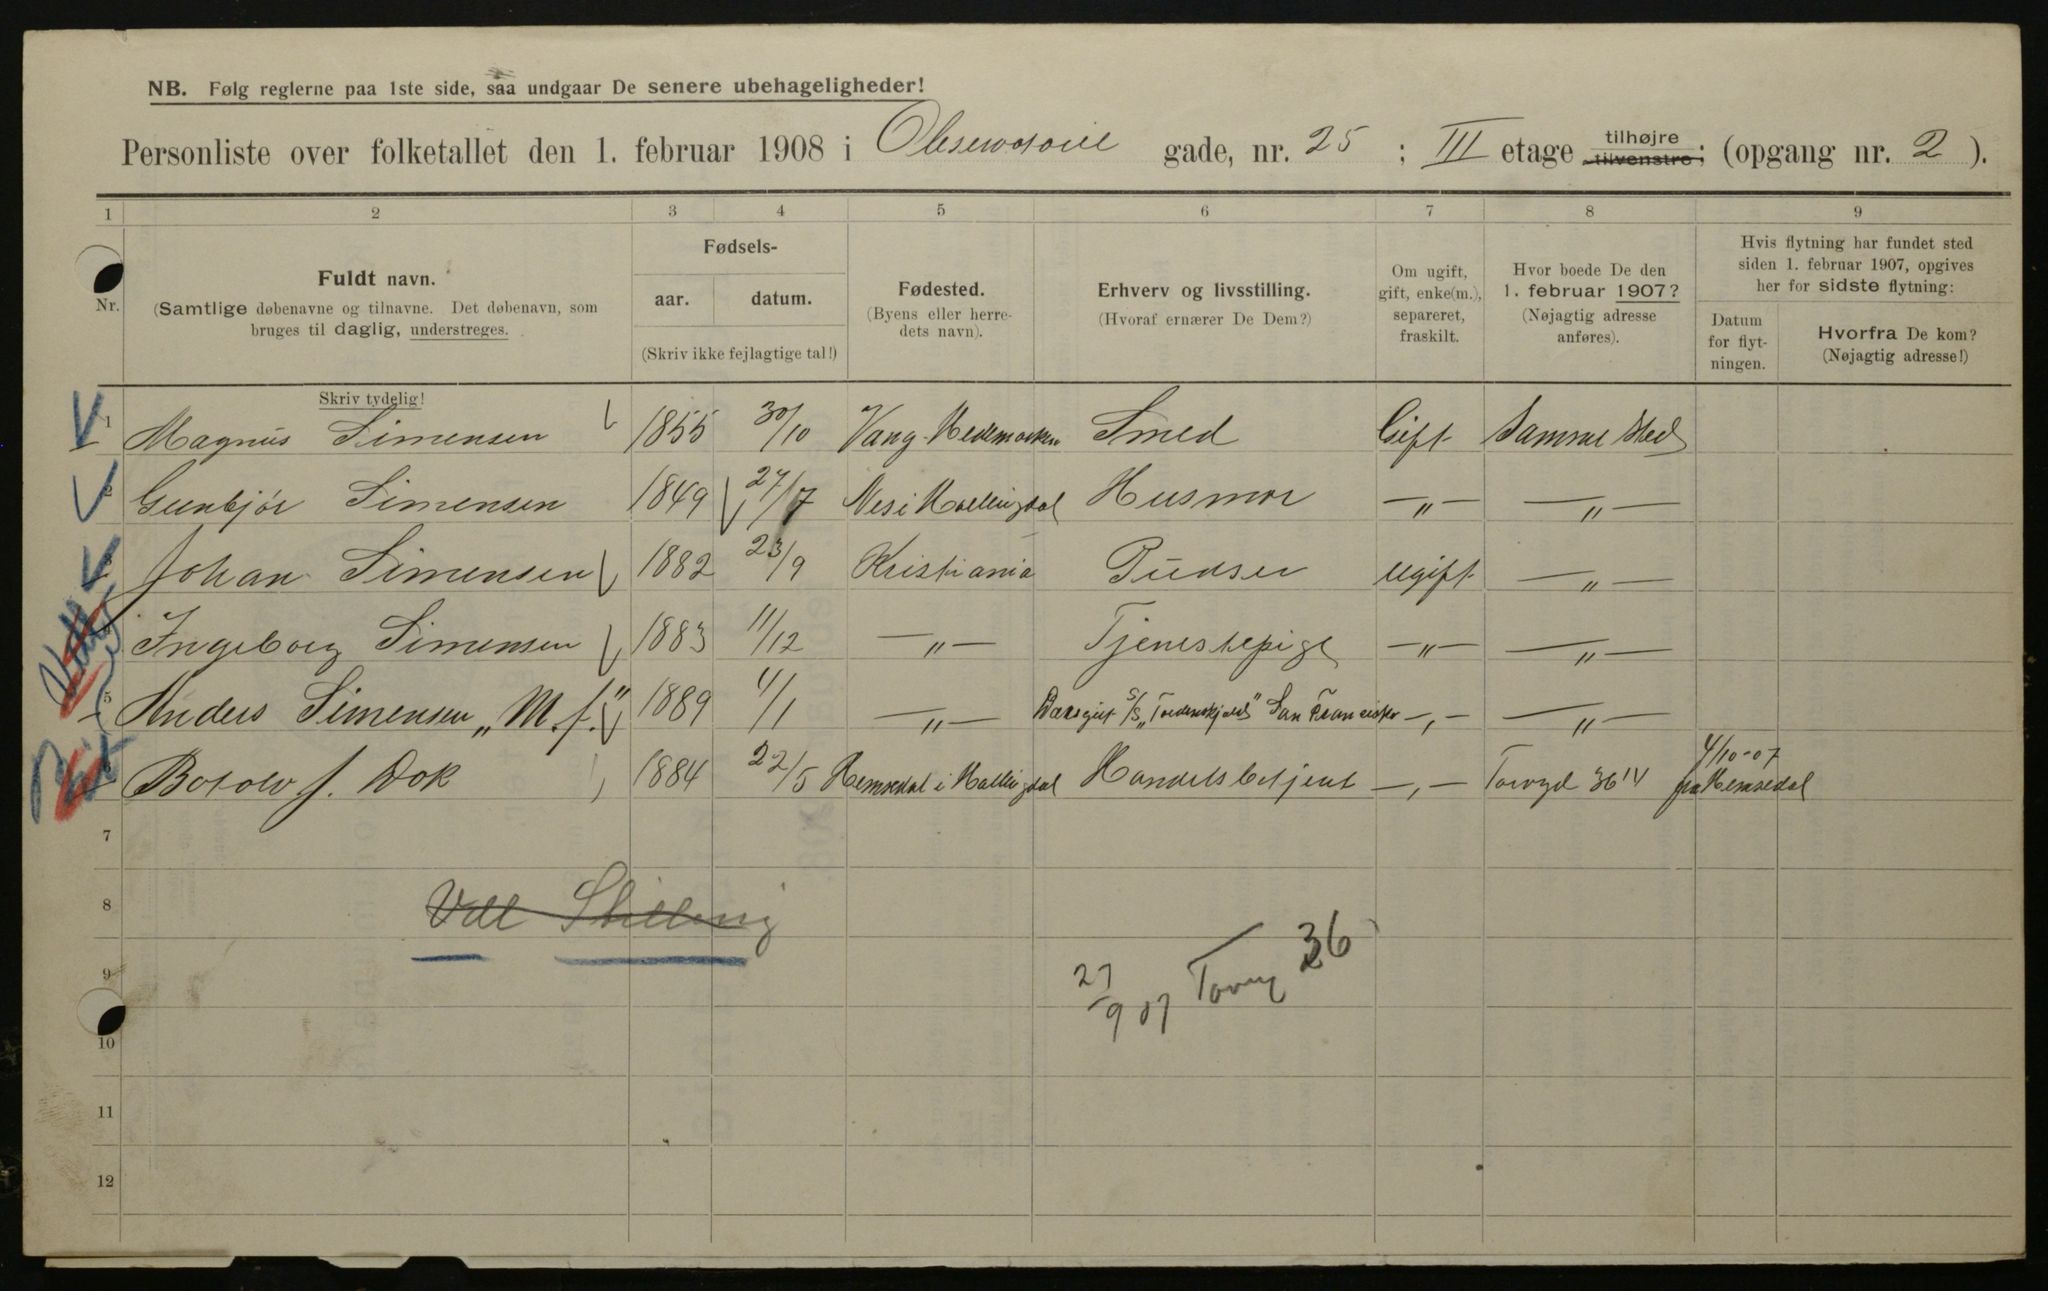 NB. Følg reglerne paa 1ste side, saa undgaar De senere ubehageligheder!
Personliste over folketallet den 1. februar 1908 i Observatorie gade, nr. 25 ; III etage tilhøjre tilvenstre; (opgang nr. 2 ).
1 2 3 4 5 6 7 8 9
Nr.
Fuldt navn.
(Samtlige døbenavne og tilnavne. Det døbenavn, som
bruges til daglig, understreges.
Fødsels-
aar. datum.
(Skriv ikke fejlagtige tal!)
Fødested.
(Byens eller herre-
dets navn).
Erhverv og livsstilling.
(Hvoraf ernærer De Dem?)
Om ugift,
gift, enke(m.),
separeret,
fraskilt.
Hvor boede De den
1. februar 1907?
(Nøjagtig adresse
anføres).
Hvis flytning har fundet sted
siden 1. februar 1907, opgives
her for sidste flytning:
Datum
for flyt-
ningen.
Hvorfra De kom?
(Nøjagtig adresse!)
Skriv tydelig!
1 Magnus Simensen 1855 30/10 Vang Hedemarken Smed Gift Samme Sted
2 Gunbjør Simensen 1849 27/7 Nes i Hallingdal Husmor —„— —„—
3 Johan Simensen 1882 23/9 Kristiania Pudser ugift —„—
4 Ingeborg Simensen 1883 11/12 —„— Tjenestepige —„— —„—
5 Anders Simensen „M.f." 1889 4/1 —„— S/S „Tordenskjold" San Francisko —„— —„—
6 Botolv J. Dok 1884 22/5 Hemsedal i Hallingdal Handelsbetjent —„— Torvgd 36 IV 4/10-07 fra Hemsedal
7
8 Vell Stilling
9
27/9 07 Torvg 36
10
11
12